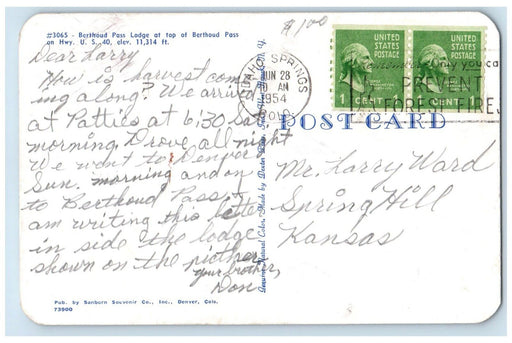 #3065 - Berthoud Pass Lodge at top of Berthoud Pass
on Hwy. U. S. 40, elev. 11,314 ft.
$1.00
Dear Larry
How is harvest com
ing along? We arrive
at Pattie's at 6:30 Sat
morning. Drove all night
We went to Denver
Sun. morning and on
to Berthoud Pass. I
am writing this letter
in side the lodge
shown on the picture
your brother,
Don
Pub. by Sanborn Souvenir Co., Inc., Denver, Colo.
73900
IDAHO SPRINGS
JUN 28
AM
1954
COLO.
UNITED
STATES
POSTAGE
1 CENT
UNITED
STATES
POSTAGE
1 CENT
Only you ca
PREVENT
FOREST FIRES
POST CARD
Mr. Larry Ward
Spring Hill
Kansas
Genuine Natural Color Made by Dexter